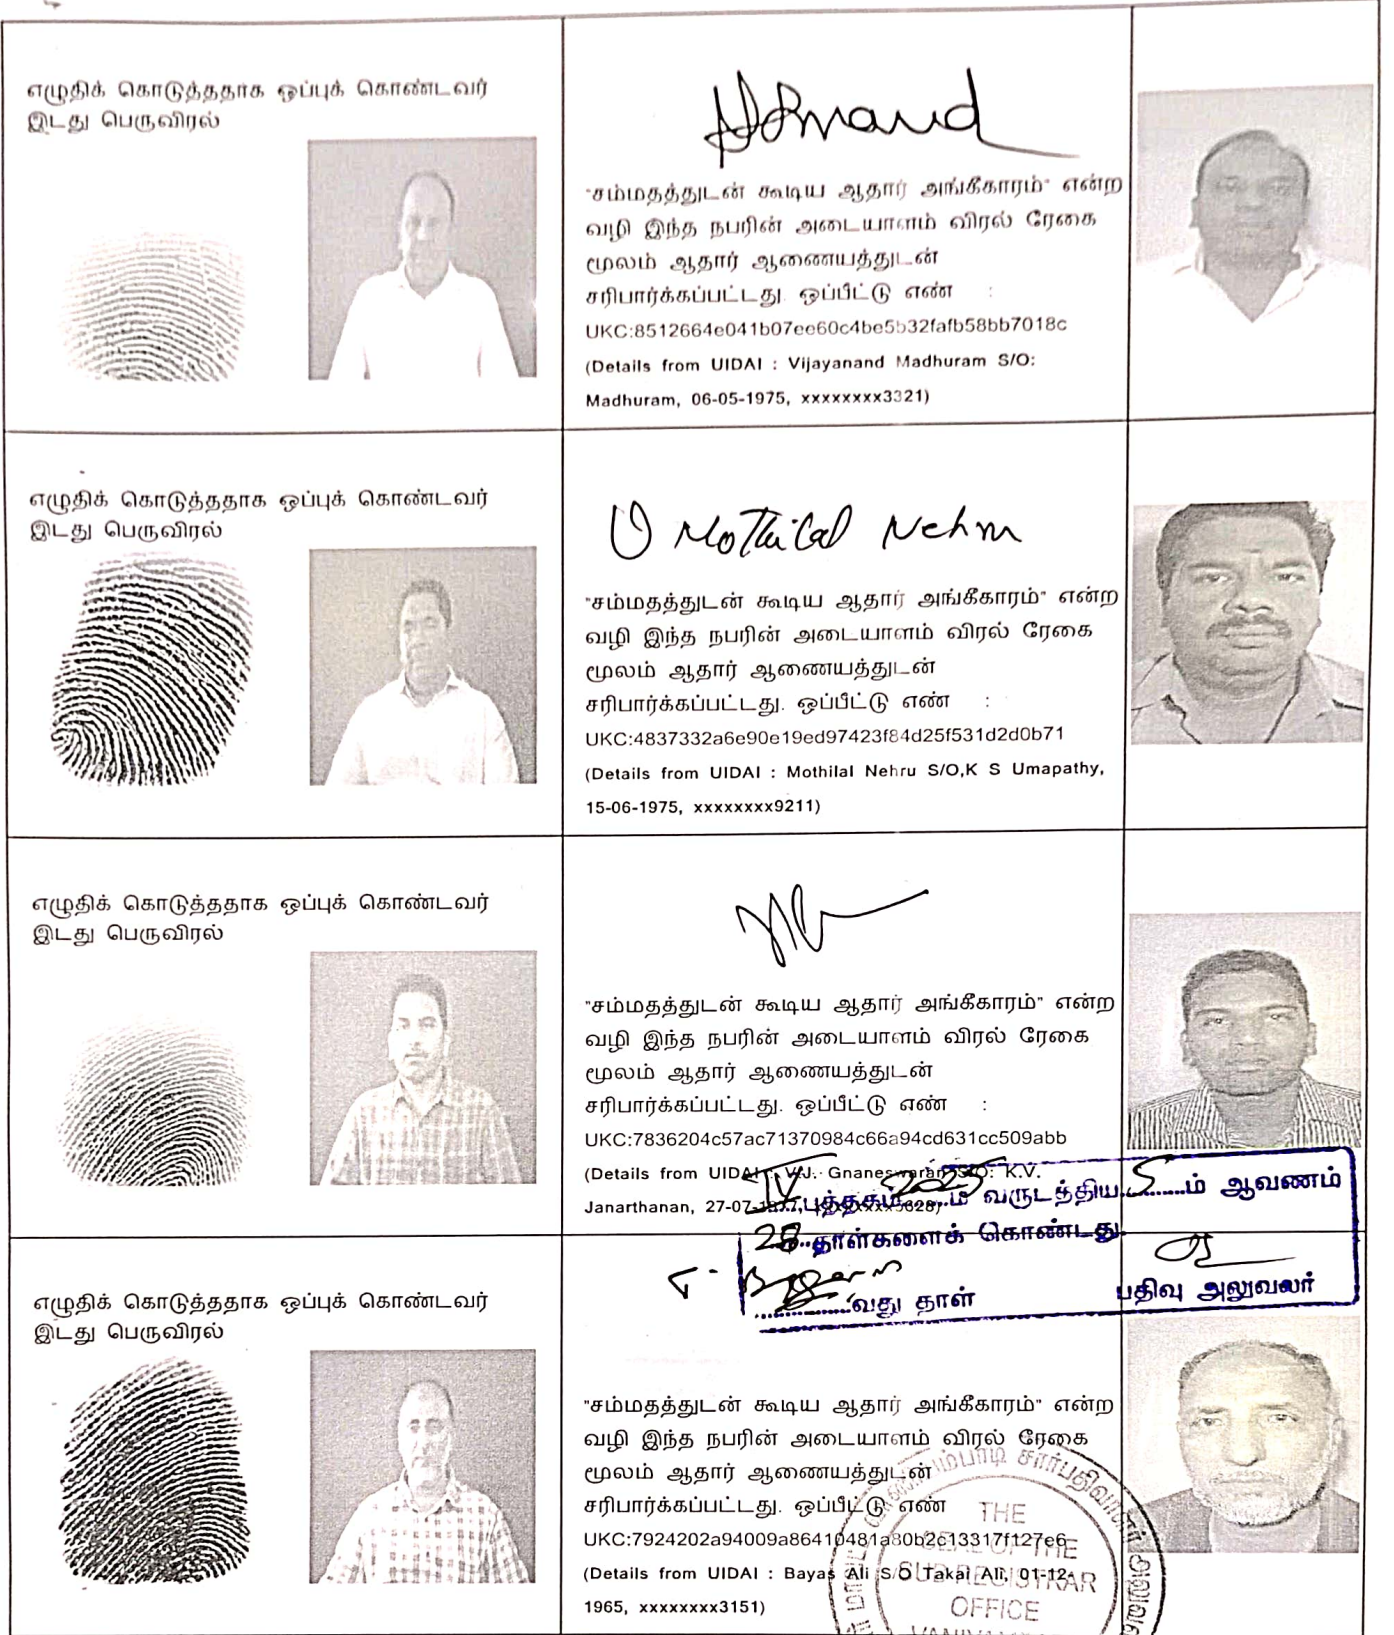 எழுதிக் கொடுத்ததாக ஒப்புக் கொண்டவர்
இடது பெருவிரல்
"சம்மதத்துடன் கூடிய ஆதார் அங்கீகாரம்" என்ற
வழி இந்த நபரின் அடையாளம் விரல் ரேகை
மூலம் ஆதார் ஆணையத்துடன்
சரிபார்க்கப்பட்டது. ஒப்பீட்டு எண் :
UKC:8512664e041b07ee60c4be5b32fafb58bb7018c
(Details from UIDAI : Vijayanand Madhuram S/O:
Madhuram, 06-05-1975, xxxxxxxx3321)
எழுதிக் கொடுத்ததாக ஒப்புக் கொண்டவர்
இடது பெருவிரல்
Mothilal Nehru
"சம்மதத்துடன் கூடிய ஆதார் அங்கீகாரம்" என்ற
வழி இந்த நபரின் அடையாளம் விரல் ரேகை
மூலம் ஆதார் ஆணையத்துடன்
சரிபார்க்கப்பட்டது. ஒப்பீட்டு எண் :
UKC:4837332a6e90e19ed97423f84d25f531d2d0b71
(Details from UIDAI : Mothilal Nehru S/O,K S Umapathy,
15-06-1975, xxxxxxxx9211)
எழுதிக் கொடுத்ததாக ஒப்புக் கொண்டவர்
இடது பெருவிரல்
"சம்மதத்துடன் கூடிய ஆதார் அங்கீகாரம்" என்ற
வழி இந்த நபரின் அடையாளம் விரல் ரேகை
மூலம் ஆதார் ஆணையத்துடன்
சரிபார்க்கப்பட்டது. ஒப்பீட்டு எண் :
UKC:7836204c57ac71370984c66a94cd631cc509abb
(Details from UIDAI : V.J. Gnaneswaran S/O: K.V.
Janarthanan,
IV புத்தகம் 2025 ம் வருடத்திய 5 ம் ஆவணம்
28 தாள்களைக் கொண்டது.
வது தாள் பதிவு அலுவலர்
எழுதிக் கொடுத்ததாக ஒப்புக் கொண்டவர்
இடது பெருவிரல்
"சம்மதத்துடன் கூடிய ஆதார் அங்கீகாரம்" என்ற
வழி இந்த நபரின் அடையாளம் விரல் ரேகை
மூலம் ஆதார் ஆணையத்துடன்
சரிபார்க்கப்பட்டது. ஒப்பீட்டு எண்
UKC:7924202a94009a86410481a80b2c13317f127e6
(Details from UIDAI : Bayas Ali S/O Takai Ali, 01-12-
1965, xxxxxxxx3151)
THE
SEAL OF THE
SUB REGISTRAR
OFFICE